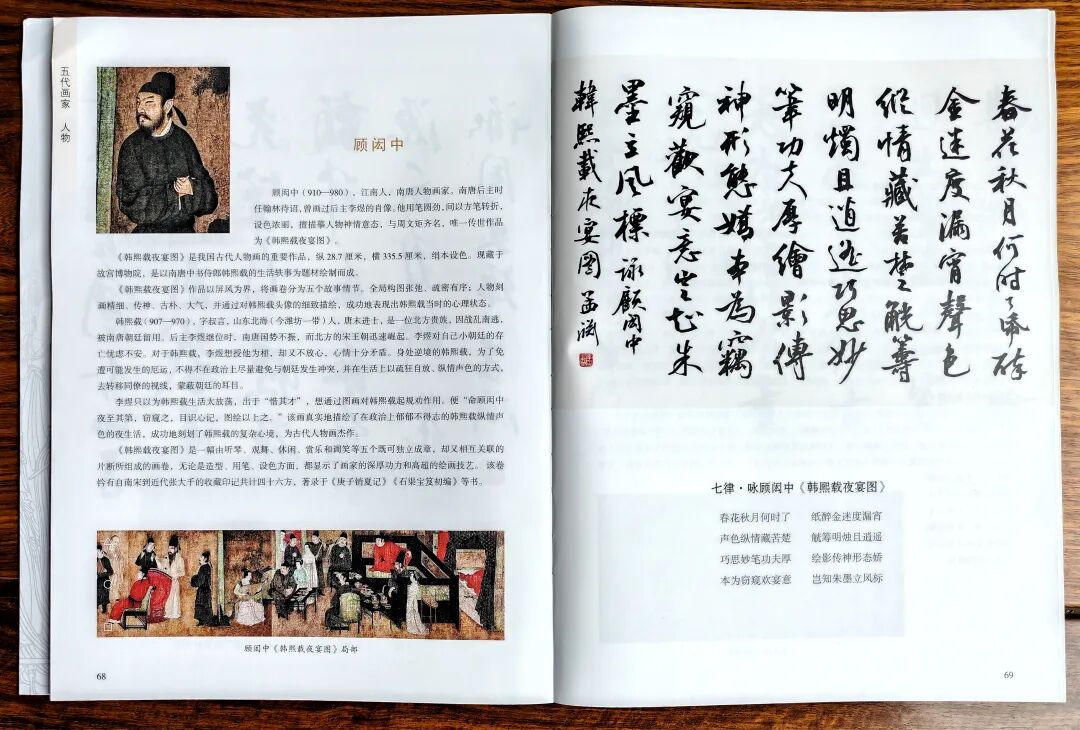 五代画家 人物
顾闳中
顾闳中（910—980），江南人，南唐人物画家。南唐后主时
任翰林待诏，曾画过后主李煜的肖像。他用笔圆劲，间以方笔转折，
设色浓丽，擅描摹人物神情意态，与周文矩齐名，唯一传世作品
为《韩熙载夜宴图》。
《韩熙载夜宴图》是我国古代人物画的重要作品，纵 28.7 厘米，横 335.5 厘米，绢本设色。现藏于
故宫博物院，是以南唐中书侍郎韩熙载的生活轶事为题材绘制而成。
《韩熙载夜宴图》作品以屏风为界，将画卷分为五个故事情节。全局构图张弛、疏密有序；人物刻
画精细、传神、古朴、大气，并通过对韩熙载头像的细致描绘，成功地表现出韩熙载当时的心理状态。
韩熙载（907—970），字叔言，山东北海（今潍坊一带）人，唐末进士，是一位北方贵族，因战乱南逃，
被南唐朝廷留用。后主李煜继位时，南唐国势不振，而北方的宋王朝迅速崛起。李煜对自己小朝廷的存
亡忧虑不安。对于韩熙载，李煜想授他为相，却又不放心，心情十分矛盾。身处逆境的韩熙载，为了免
遭可能发生的厄运，不得不在政治上尽量避免与朝廷发生冲突，并在生活上以疏狂自放、纵情声色的方式，
去转移同僚的视线，蒙蔽朝廷的耳目。
李煜只以为韩熙载生活太放荡，出于“惜其才”，想通过图画对韩熙载起规劝作用。便“命顾闳中
夜至其第，窃窥之，目识心记，图绘以上之。”该画真实地描绘了在政治上郁郁不得志的韩熙载纵情声
色的夜生活，成功地刻划了韩熙载的复杂心境，为古代人物画杰作。
《韩熙载夜宴图》是一幅由听琴、观舞、休闲、赏乐和调笑等五个既可独立成章，却又相互关联的
片断所组成的画卷，无论是造型、用笔、设色方面，都显示了画家的深厚功力和高超的绘画技艺。 该卷
钤有自南宋到近代张大千的收藏印记共计四十六方，著录于《庚子销夏记》《石渠宝笈初编》等书。
顾闳中《韩熙载夜宴图》局部
68
春花秋月何时了 帋醉
金迷度漏宵聲色
纵情藏苦楚觥籌
明燭且逍遥巧思妙
筆功夫厚繪影傳
神形態嬌本為竊
窺歡宴意豈知朱
墨立風標 詠顧闳中
韓熙載夜宴圖
七律·咏顾闳中《韩熙载夜宴图》
春花秋月何时了 纸醉金迷度漏宵
声色纵情藏苦楚 觥筹明烛且逍遥
巧思妙笔功夫厚 绘影传神形态娇
本为窃窥欢宴意 岂知朱墨立风标
69